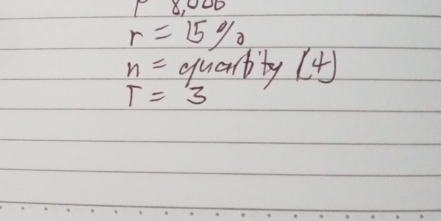 P 8,000
r = 15%
n = quartity (4)
T = 3